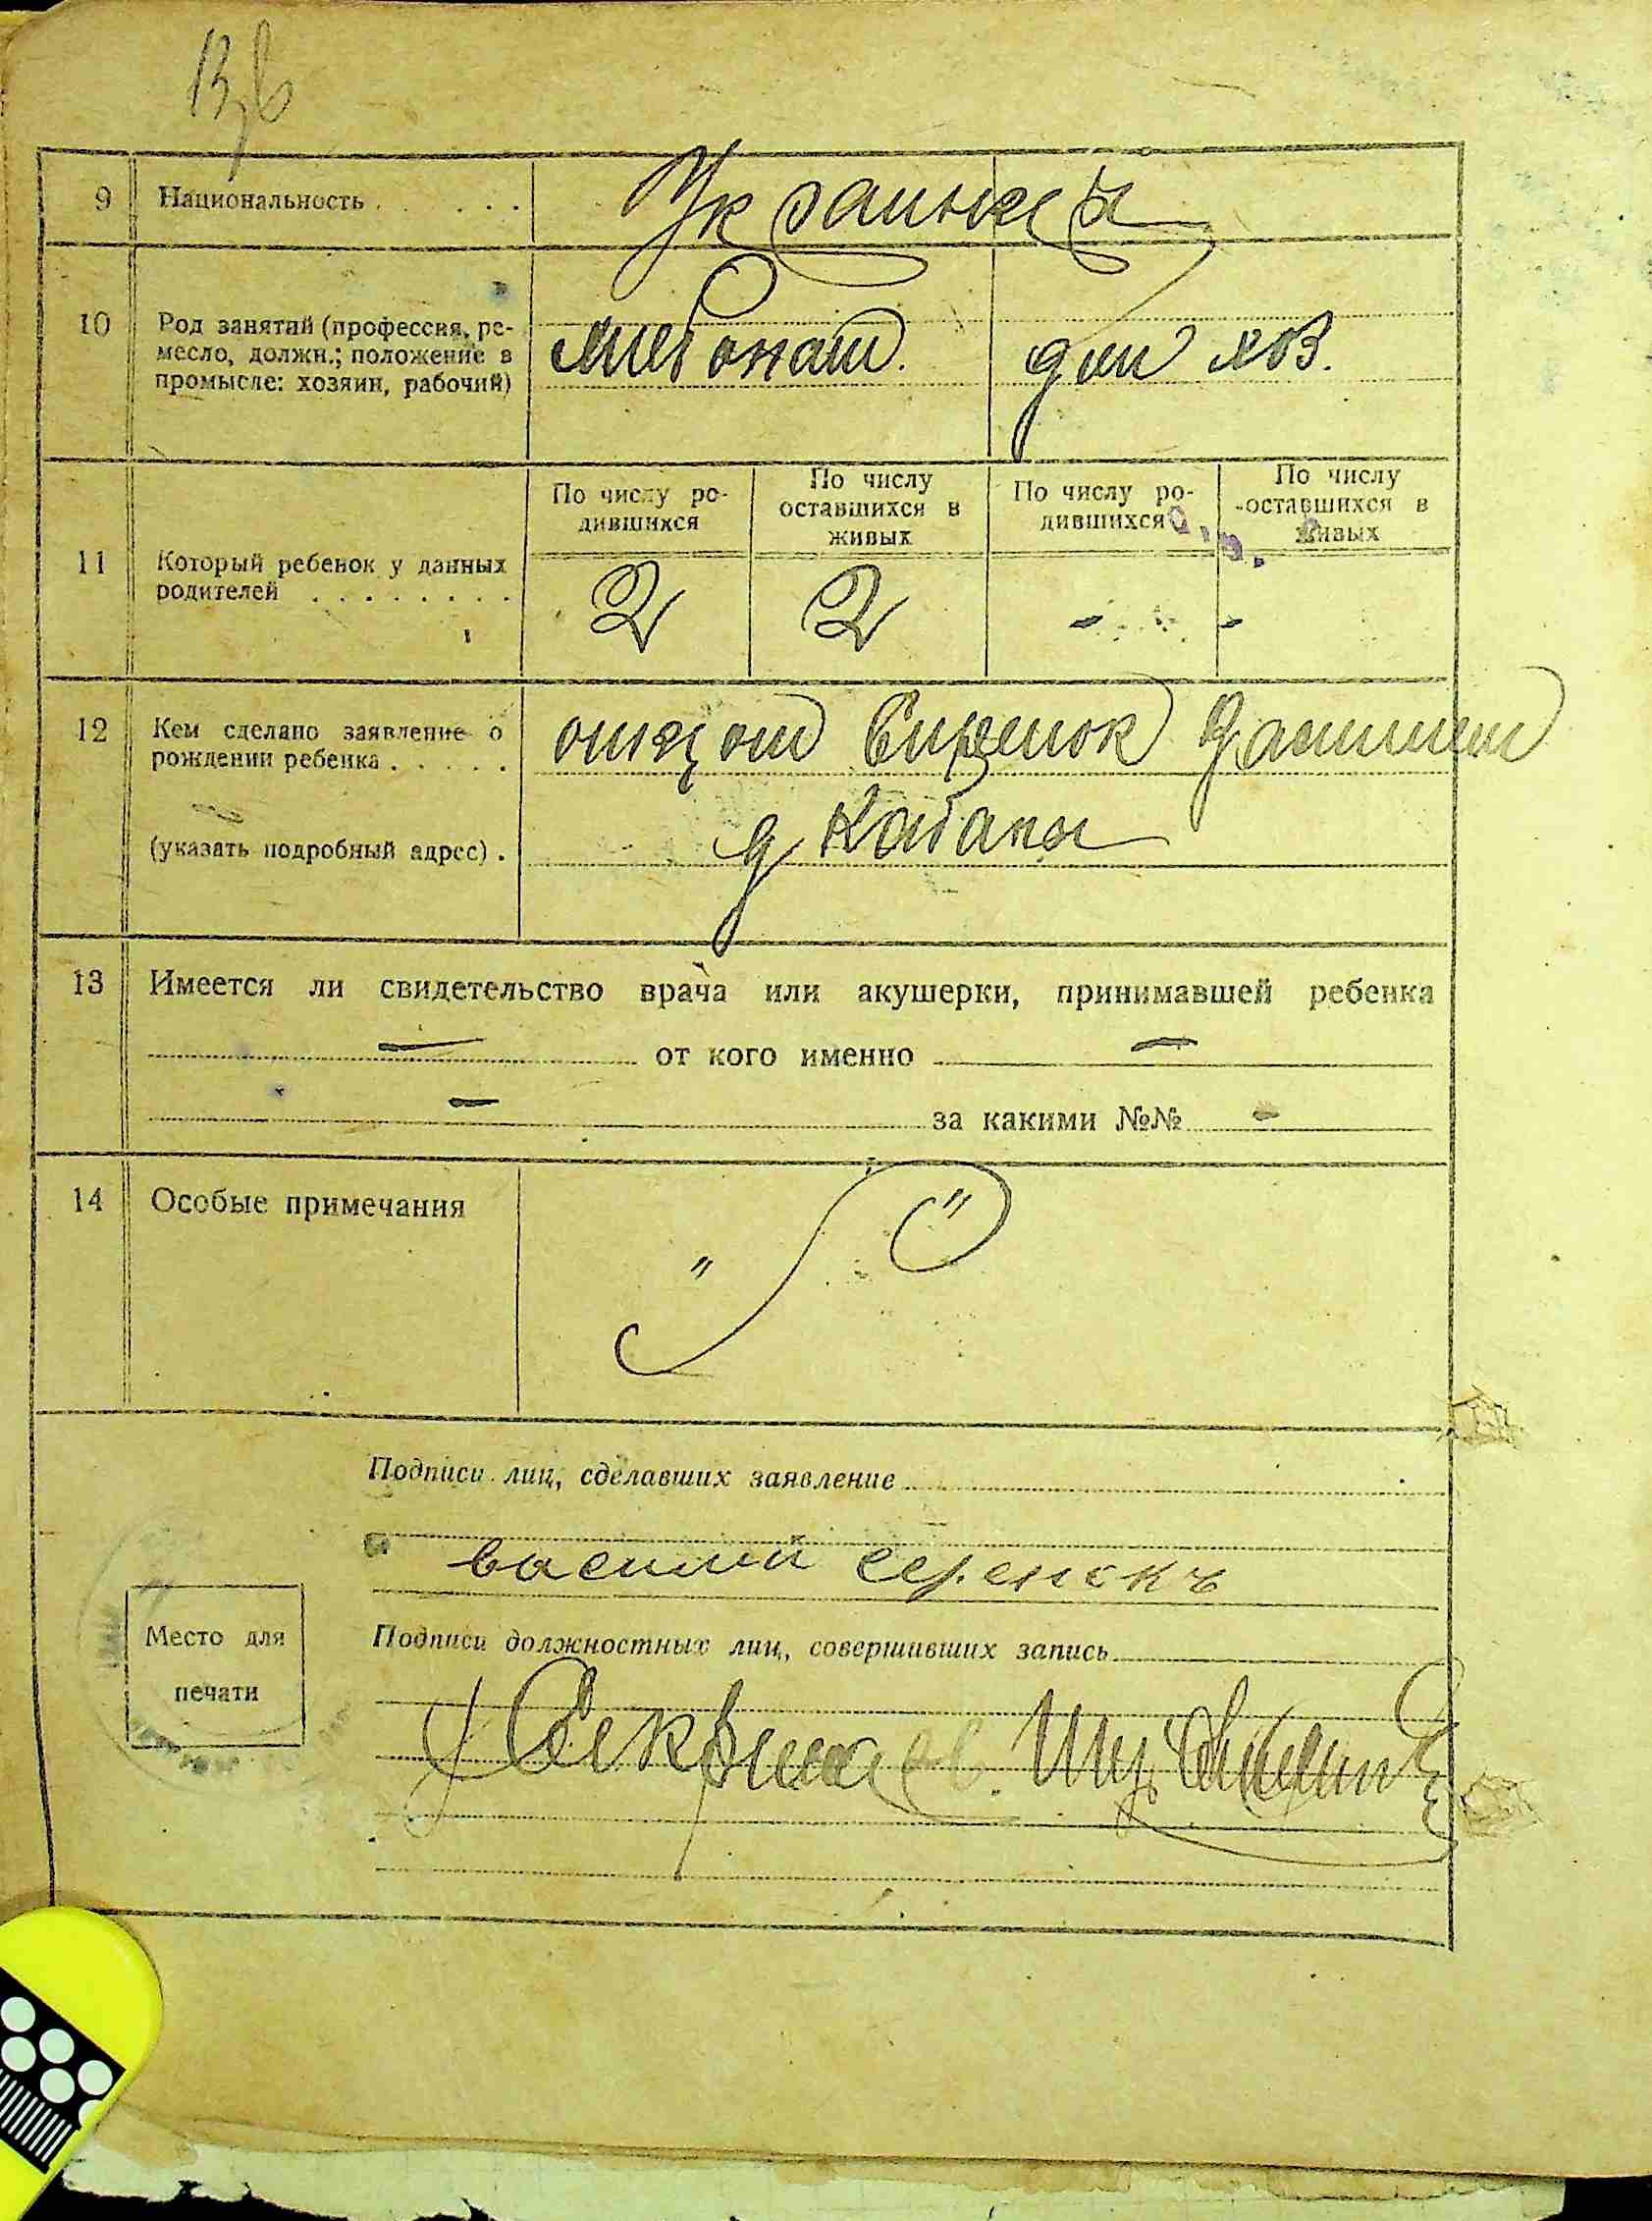 13
9 Национальность . . . . . Украинцы
10 Род занятий (профессия, ре-
месло, должн.; положение в
промысле: хозяин, рабочий)
хлебопаш. дом хоз.
По числу ро-
дившихся
По числу
оставшихся в
живых
По числу ро-
дившихся
По числу
оставшихся в
живых
11 Который ребенок у данных
родителей . . . . . . . .
2 2 - -
12 Кем сделано заявление о
рождении ребенка . . . . .
отцом Сиренок
(указать подробный адрес) .
д Кабаны
13 Имеется ли свидетельство врача или акушерки, принимавшей ребенка
— от кого именно —
— за какими №№ -
14 Особые примечания
" "
Подписи лиц, сделавших заявление
василий серенокъ
Место для
печати
Подписи должностных лиц, совершивших запись